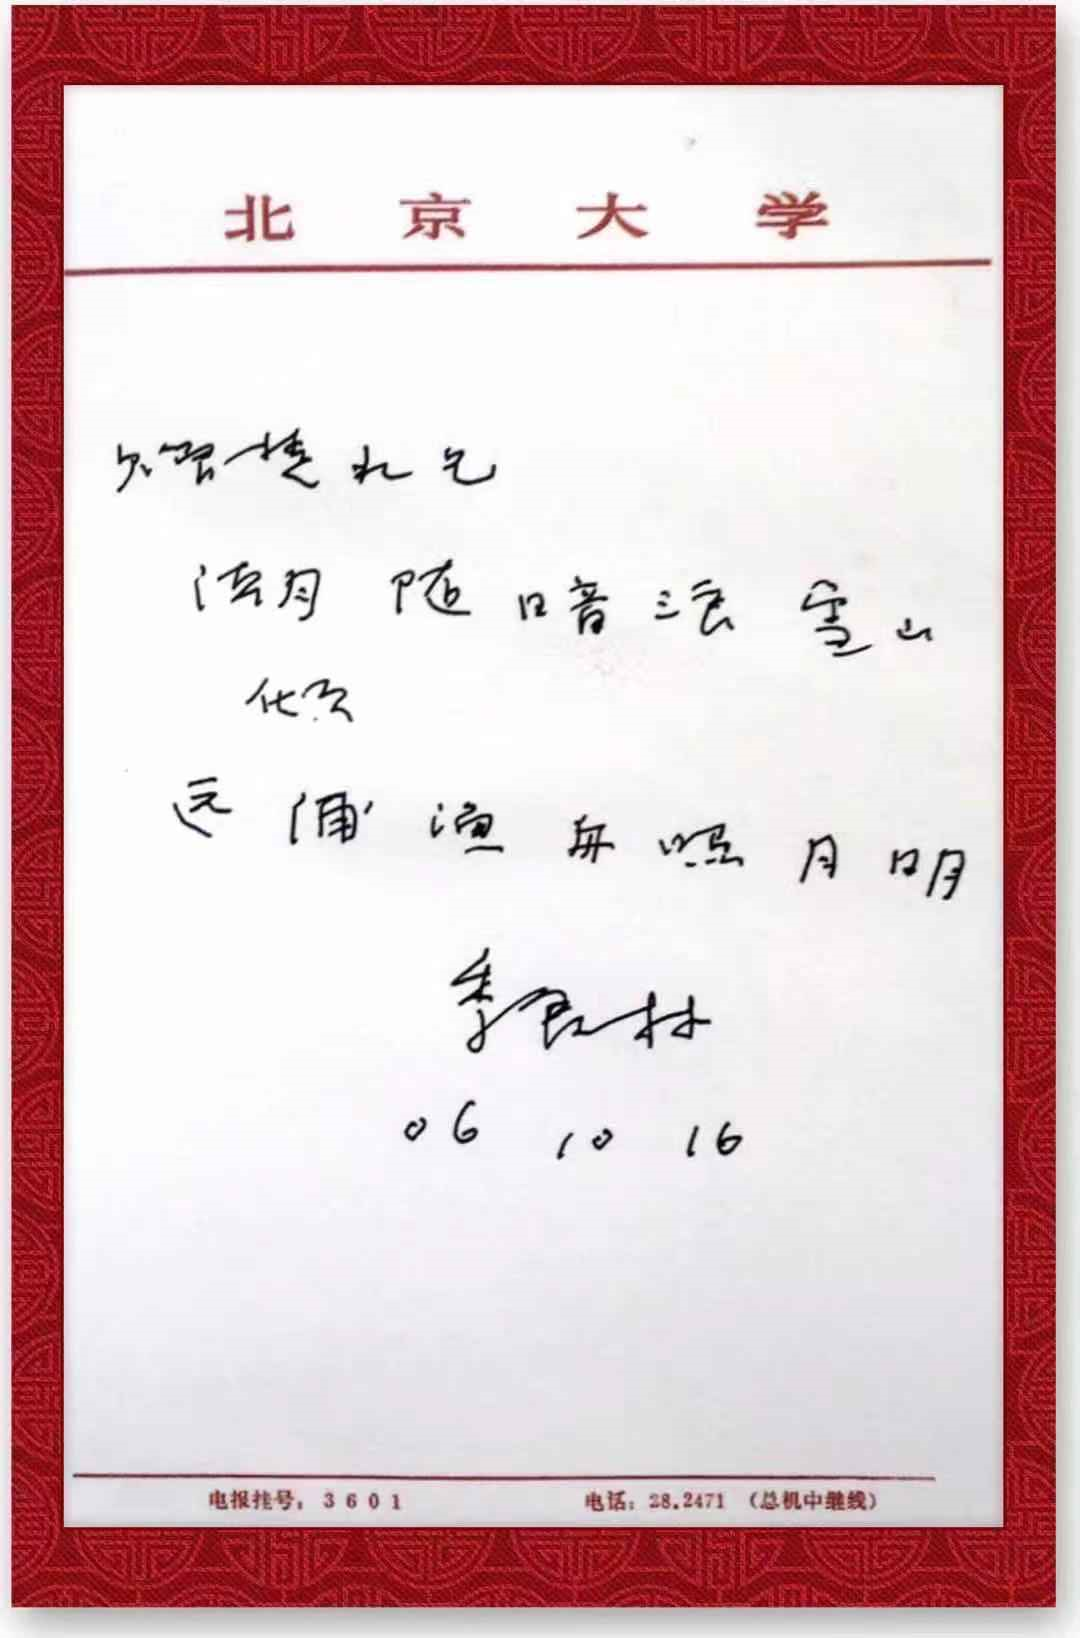 北京大学
潮随暗浪雪山
倾
远浦渔舟照月明
季羡林
06 10 16
电报挂号：3601 电话：28.2471 （总机中继线）